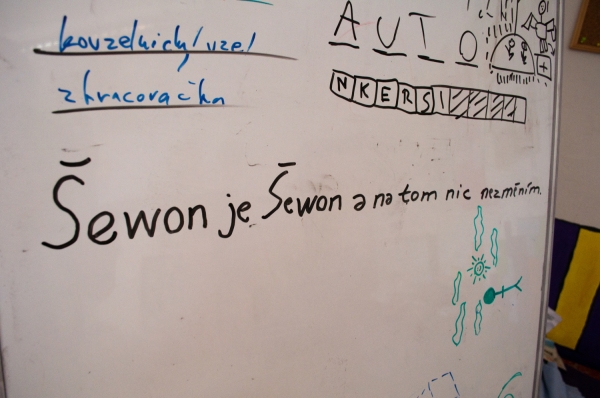 kouzelnický uzel
zkracovačka
AUTO
NKERSI
Šewon je Šewon a na tom nic nezměním.